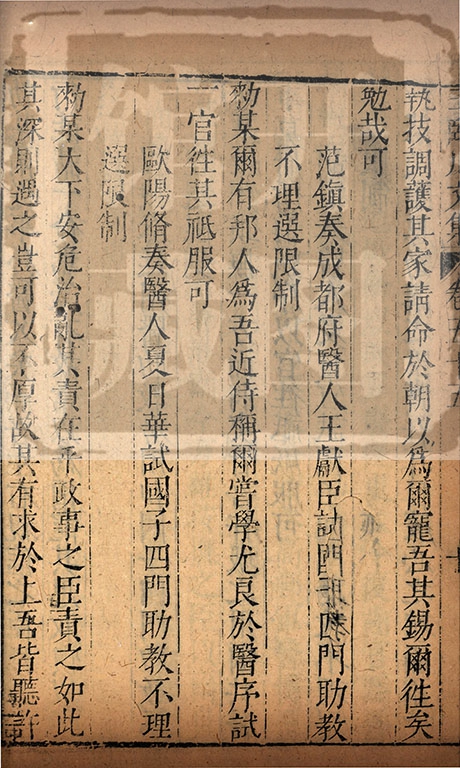 王臨川文集 卷五十五 十
執技調護其家請命於朝以爲爾寵吾其錫爾徃矣
勉哉可
范鎭奏成都府醫人王獻臣試國子四門助教
不理選限制
勑某爾有邦人爲吾近侍稱爾嘗學尤良於醫序試
一官徃其祗服可
歐陽脩奏醫人夏日華試國子四門助教不理
選限制
勑某天下安危治亂其責在乎政事之臣責之如此
其深則遇之豈可以不厚故其有求於上吾皆聽許